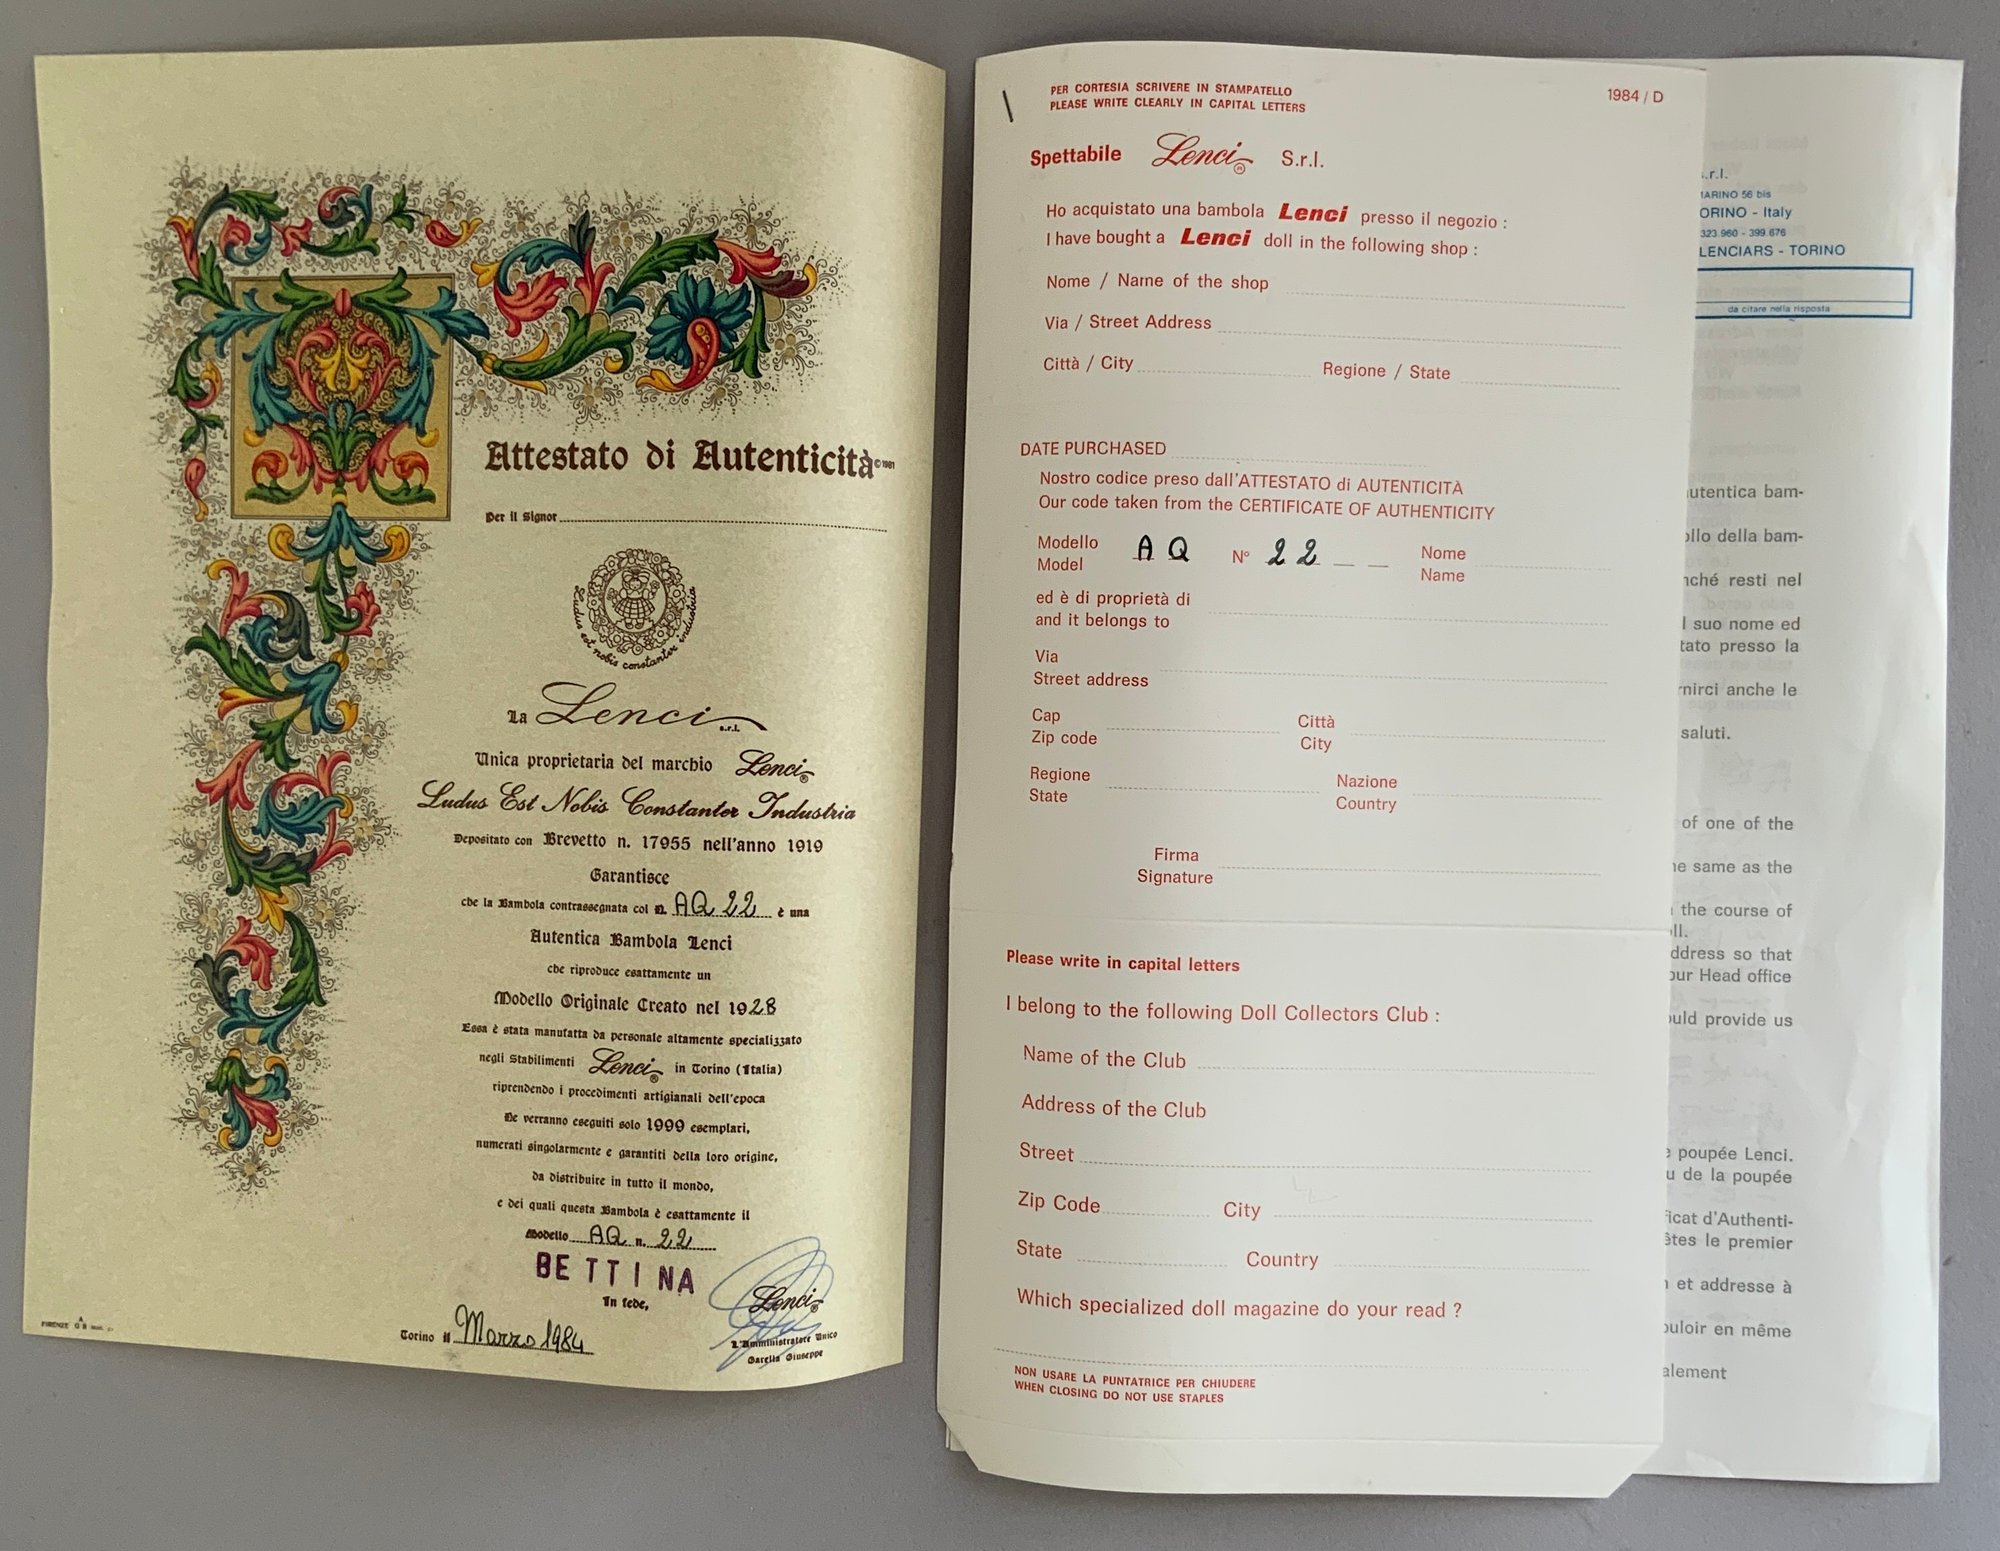 Attestato di Autenticità © 1981
Per il Signor
Ludus est nobis constanter industria
La Lenci s.r.l.
Unica proprietaria del marchio Lenci ®
Ludus Est Nobis Constanter Industria
Depositato con Brevetto n. 17955 nell'anno 1919
Garantisce
che la Bambola contrassegnata col n. AQ 22 è una
Autentica Bambola Lenci
che riproduce esattamente un
Modello Originale Creato nel 1928
Essa è stata manufatta da personale altamente specializzato
negli Stabilimenti Lenci ® in Torino (Italia)
riprendendo i procedimenti artigianali dell'epoca
Ne verranno eseguiti solo 1999 esemplari,
numerati singolarmente e garantiti della loro origine,
da distribuire in tutto il mondo,
e dei quali questa Bambola è esattamente il
Modello AQ n. 22
BETTINA
In fede,
Lenci ®
Torino il Marzo 1984
L'Amministratore Unico
Garella Giuseppe
FIRENZE
PER CORTESIA SCRIVERE IN STAMPATELLO
PLEASE WRITE CLEARLY IN CAPITAL LETTERS
1984 / D
Spettabile Lenci ® S.r.l.
Ho acquistato una bambola Lenci presso il negozio :
I have bought a Lenci doll in the following shop :
Nome / Name of the shop
Via / Street Address
Città / City Regione / State
DATE PURCHASED
Nostro codice preso dall'ATTESTATO di AUTENTICITÀ
Our code taken from the CERTIFICATE OF AUTHENTICITY
Modello AQ N° 22 Nome
Model Name
ed è di proprietà di
and it belongs to
Via
Street address
Cap Città
Zip code City
Regione Nazione
State Country
Firma
Signature
Please write in capital letters
I belong to the following Doll Collectors Club :
Name of the Club
Address of the Club
Street
Zip Code City
State Country
Which specialized doll magazine do your read ?
NON USARE LA PUNTATRICE PER CHIUDERE
WHEN CLOSING DO NOT USE STAPLES
.r.l.
MARINO 56 bis
ORINO - Italy
323 960 - 399.676
LENCIARS - TORINO
da citare nella risposta
utentica bam-
ollo della bam-
nché resti nel
l suo nome ed
tato presso la
rnirci anche le
saluti.
of one of the
ne same as the
the course of
ll.
ddress so that
our Head office
ould provide us
e poupée Lenci.
u de la poupée
ficat d'Authenti-
êtes le premier
n et addresse à
ouloir en même
alement